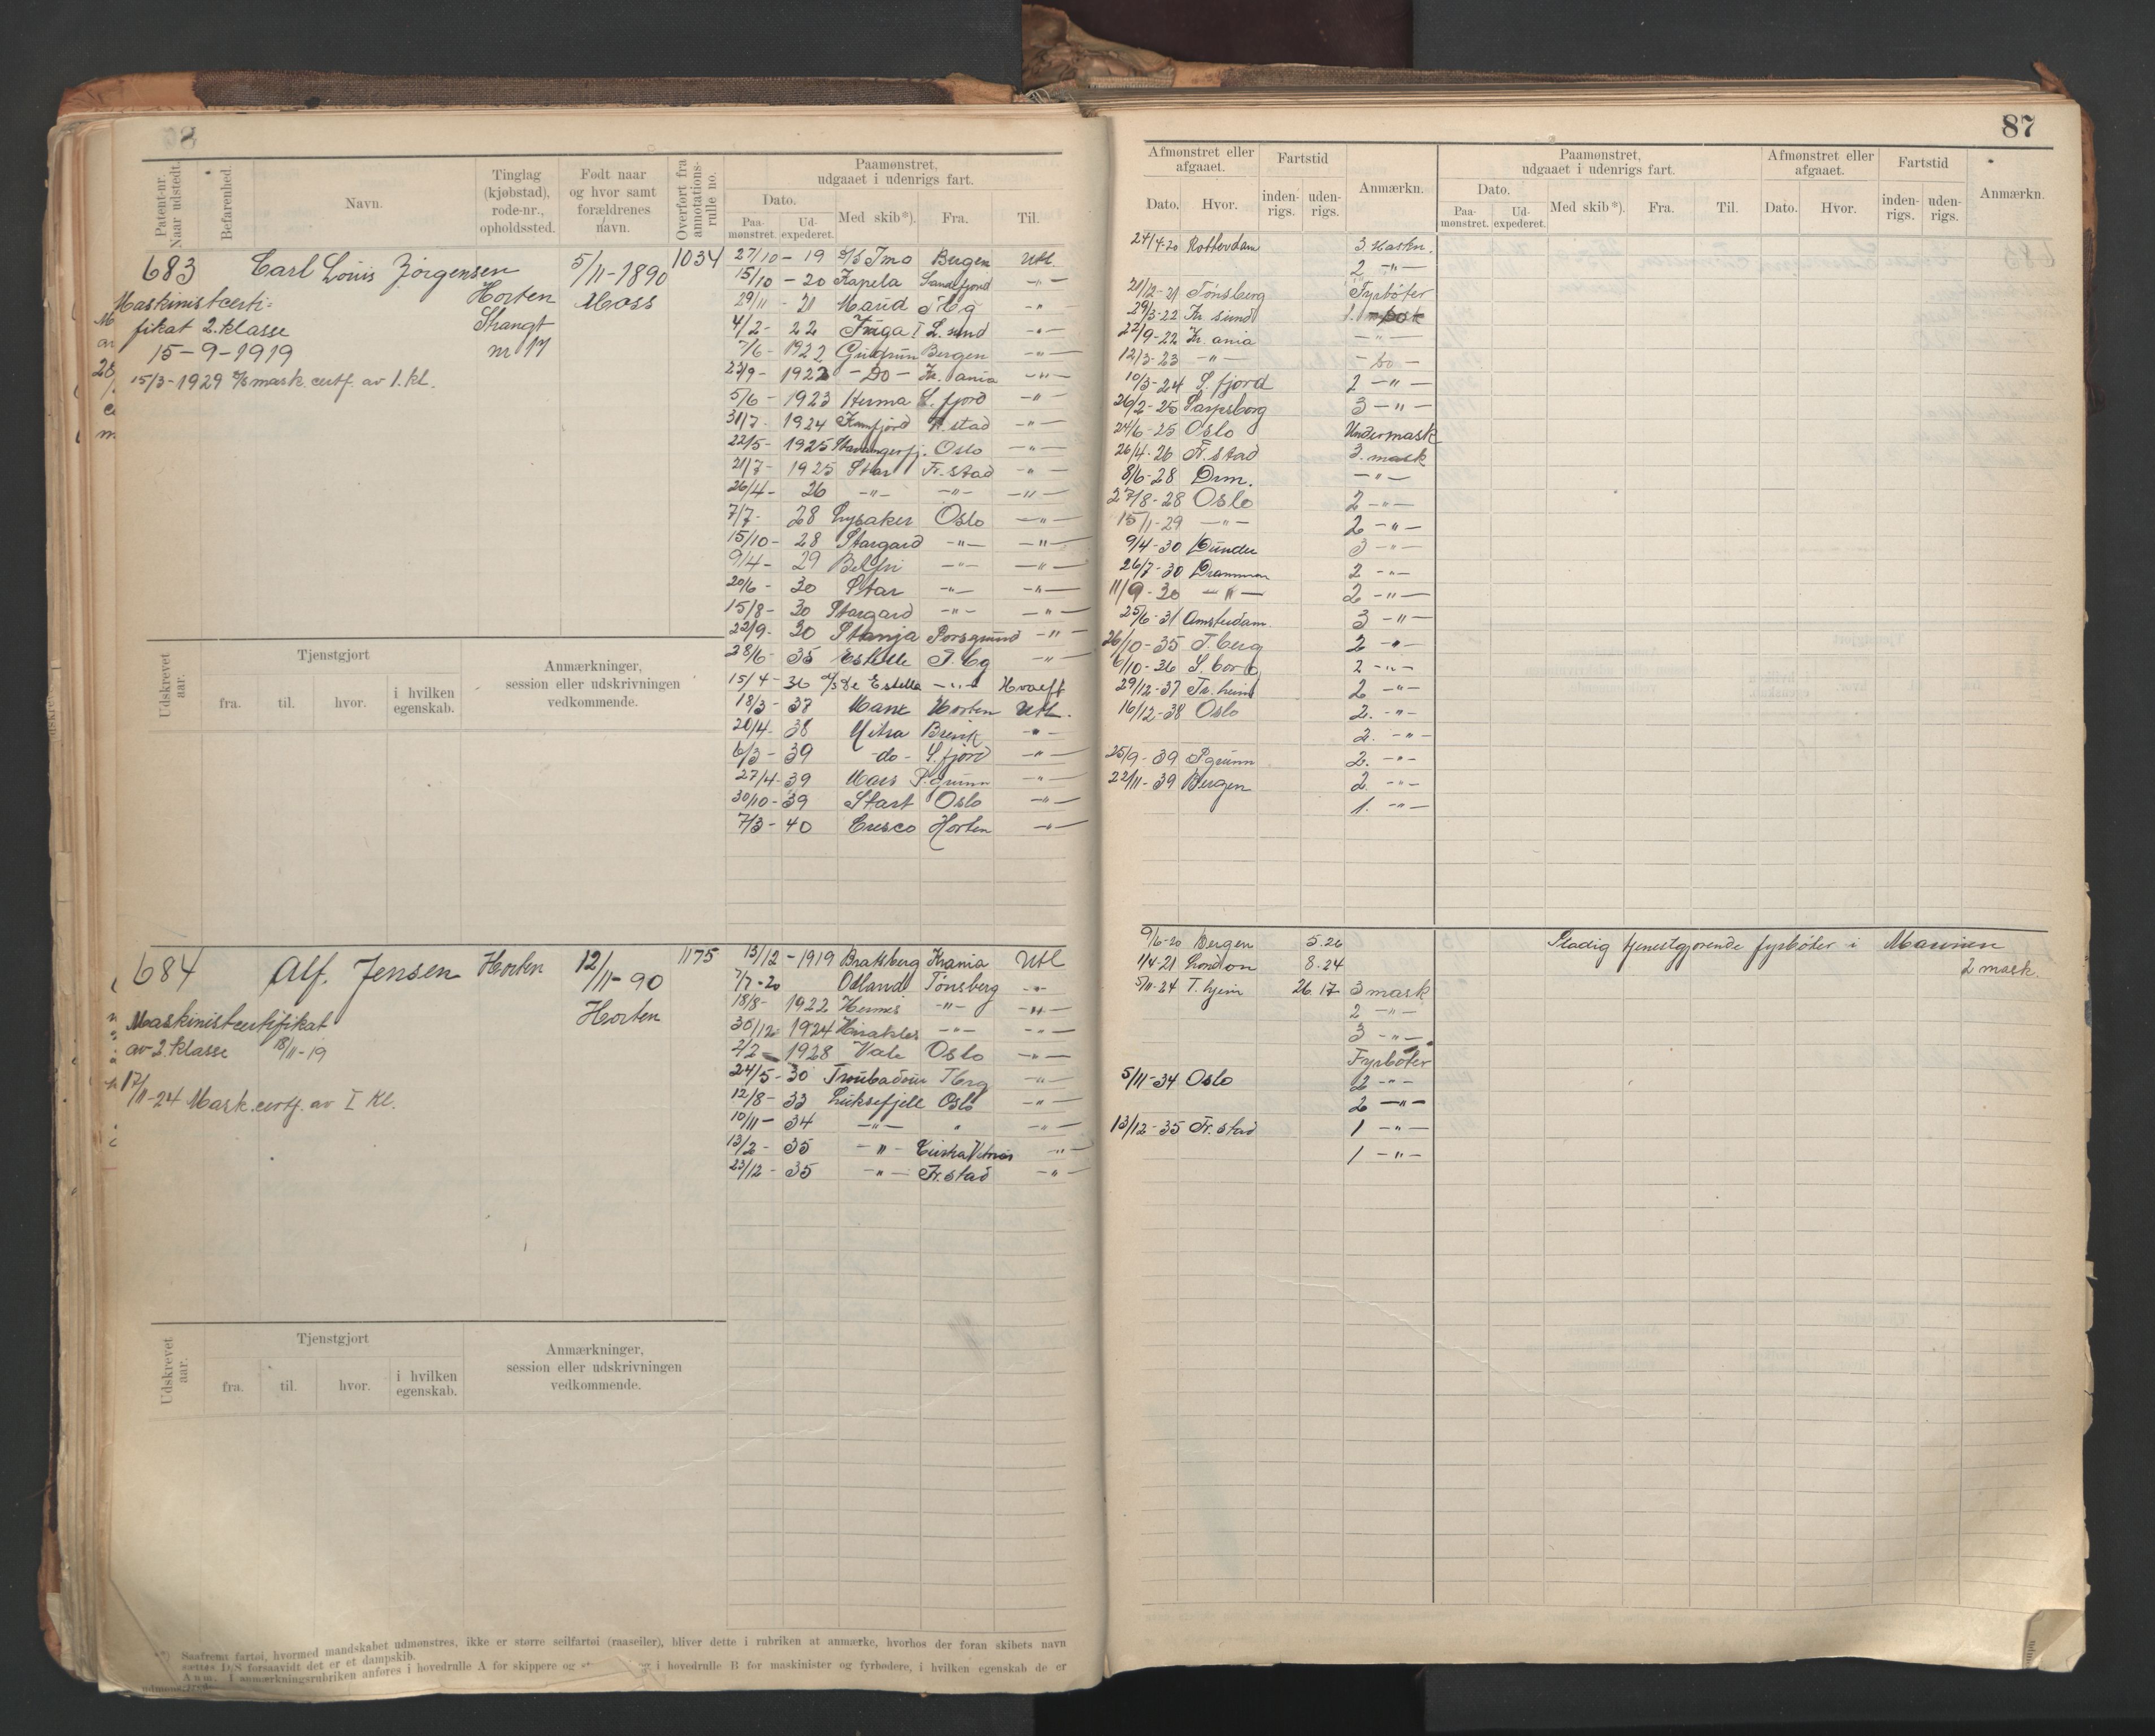 87
Patent-nr. Naar udstedt.
Befarenhed.
Navn.
Tinglag (kjøbstad), rode-nr., opholdssted.
Født naar og hvor samt forældrenes navn.
Overført fra annotations-rulle no.
Paamønstret, udgaaet i udenrigs fart.
Dato.
Paa-mønstret.
Ud-expederet.
Med skib*).
Fra.
Til.
Afmønstret eller afgaaet.
Dato.
Hvor.
Fartstid
inden-rigs.
uden-rigs.
Anmærkn.
Paamønstret, udgaaet i udenrigs fart.
Dato.
Paa-mønstret.
Ud-expederet.
Med skib*).
Fra.
Til.
Afmønstret eller afgaaet.
Dato.
Hvor.
Fartstid
inden-rigs.
uden-rigs.
Anmærkn.
683 Carl Louis Jørgensen 5/11-1890 1034
Horten Moss
Maskinistcerti=
fikat 2. klasse
15-9-1919
nr 17
15/3-1929 mask. certf. av 1. kl.
27/10 - 19 Imo Bergen Utl.
15/10 - 20 Kapela Sandefjord -"-
29/11 - 21 Maud -"-
4/2 - 22 L. sund -"-
7/6 - 1922 Gudrun Bergen -"-
23/9 - 1922 - Do - Kr. ania -"-
5/6 - 1923 Herma S. fjord -"-
31/7 - 1924 Fr. stad -"-
22/5 - 1925 Stavangerfj. Oslo -"-
21/7 - 1925 Star Fr. stad -"-
26/4 - 26 -"- -"- -"-
7/7 - 28 Lysaker Oslo -"-
15/10 - 28 Stargard -"- -"-
9/4 - 29 Belfri -"- -"-
20/6 - 30 Star -"- -"-
15/8 - 30 Stargard -"- -"-
22/9 - 30 Stanja Porsgrund -"-
28/6 - 35 Estelle T. bg -"-
15/4 - 36 Estella -"-
18/3 - 37 Horten Utl.
20/4 - 38 Mitra Brevik -"-
6/3 - 39 - do - S. fjord -"-
27/4 - 39 P. grunn -"-
30/10 - 39 Start Oslo -"-
7/3 - 40 Cresco Horten -"-
24/4-20 Rotterdam 3. Maskn.
2 -"-
21/12-21 Tønsberg Fyrbøter
29/3-22 Kr. sund
22/9-22 Kr. ania -"-
12/3-23 -"- - Do -
10/3-24 S. fjord 2 -"-
26/2-25 Sarpsborg 3 -"-
24/6-25 Oslo Undermask
26/4-26 Fr. stad 3. mask
8/6-28 Drm. -"-
27/8-28 Oslo 2 -"-
15/1-29 -"- 2 -"-
9/4-30 3 -"-
26/7-30 Drammen 2 -"-
11/9-30 -"- 2 -"-
25/6-31 Amsterdam. 3 -"-
26/10-35 T. berg 2 -"-
6/10-36 S. borg 2 -"-
29/12-37 Tr. heim 2 -"-
16/12-38 Oslo 2. -"-
2. -"-
25/9-39 P. grunn 2. -"-
22/11-39 Bergen 2. -"-
1. -"-
Udskrevet aar.
Tjenstgjort
fra.
til.
hvor.
i hvilken egenskab.
Anmærkninger, session eller udskrivningen vedkommende.
684 Alf. Jensen Horten 12/11-90 1175
Horten
Maskinistcertifikat
av 2. klasse 18/11-19
17/11-24 Mask. certf. av I Kl.
13/12 - 1919 Bratsberg Krania Utl
7/7-20 Odland Tønsberg -"-
18/8 - 1922 Hermes -"- -"-
30/12 - 1924 Herakles -"- -"-
4/2 - 1928 Vale Oslo -"-
24/5 - 30 Troubadour Tbrg -"-
12/8 - 33 Luksefjell Oslo -"-
10/11 - 34 -"- " -"-
13/2 - 35 -"- -"-
23/12 - 35 -"- Fr. stad -"-
9/6-20 Bergen 5.26
1/4-21 London 8.24
5/11-24 T. hjem 26.17 3 mask
2 -"-
3 -"-
Fyrbøter
5/11-34 Oslo 2 -"-
2 -"-
13/12-35 Fr. stad 1 -"-
1 -"-
Stadig tjenestgjørende fyrbøter i Marinen
2 mask.
Udskrevet aar.
Tjenstgjort
fra.
til.
hvor.
i hvilken egenskab.
Anmærkninger, session eller udskrivningen vedkommende.
Saafremt fartøi, hvormed mandskabet udmønstres, ikke er større seilfartøi (raaseiler), bliver dette i rubriken at anmærke, hvorhos der foran skibets navn
sættes D/S forsaavidt det er et dampskib.
Anm. I anmærkningsrubriken anføres i hovedrulle A for skippere og i hovedrulle B for maskinister og fyrbødere, i hvilken egenskab de er